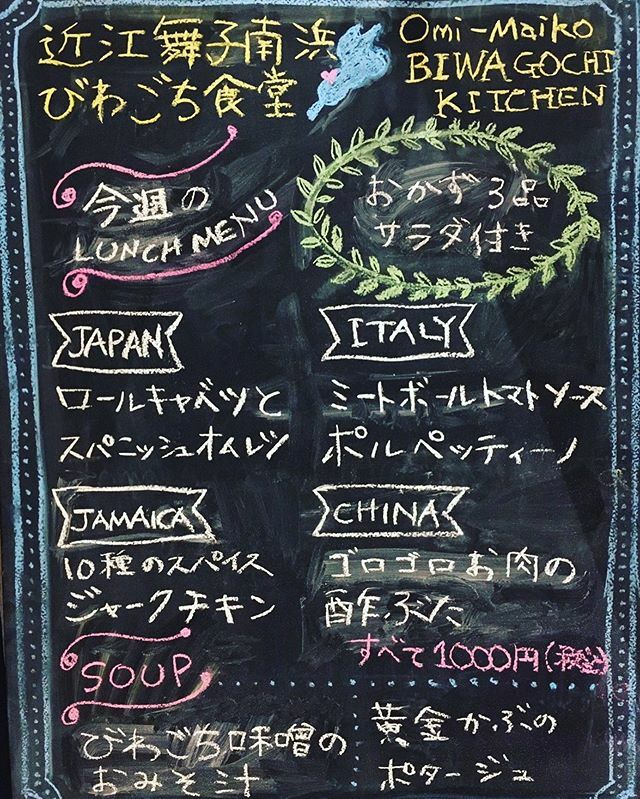 近江舞子南浜
びわごち食堂
Omi-Maiko
BIWAGOCHI
KITCHEN
今週の
LUNCH MENU
おかず3品
サラダ付き
JAPAN
ロールキャベツと
スパニッシュオムレツ
ITALY
ミートボールトマトソース
ポルペッティーノ
JAMAICA
10種のスパイス
ジャークチキン
CHINA
ゴロゴロお肉の
酢ぶた
すべて1000円(税込)
SOUP
びわごち味噌の
おみそ汁
黄金かぶの
ポタージュ